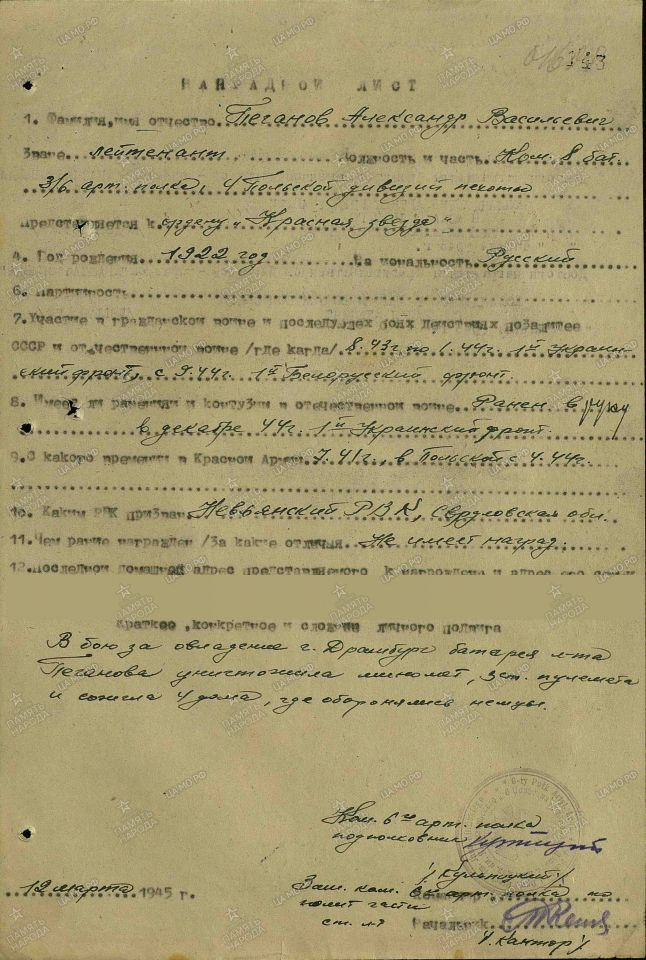 НАГРАДНОЙ ЛИСТ
1. Фамилия, имя отчество. Пеганов Александр Васильевич
Звание. лейтенант. Должность и часть. Ком. 8 бат.
арт. полка, 4 Польской дивизии пехоты
Представляется к ордену "Красная звезда"
4. Год рождения. 1922 год. Национальность. Русский
6. Партийность
7. Участие в гражданской войне и последующех боях действиях по защите
СССР и отечественной войне /где кагда/. 8.43г по 1.44г. 1й Украин-
ский фронт, с 9.44г. 1й Белорусский фронт.
8. Имеет ли ранения и контузии в отечественной войне. Ранен в руку
в декабре 44г. 1й Украинский фронт.
9. С какого времени в Красной Армии. 7.41г., в Польской с 4.44г.
10. Каким РВК призван. Невьянский РВК, Свердловская обл
11. Чем ранее награжден /За какие отличия. Не имеет наград.
12. Последной домашной адрес представляемого к награждена и адрес его
Краткое, конкретное и личного подвига
В бою за овладение г. Драмбург батарея л-та
Пеганова уничтожила миномет, 3 ст. пулемета
и сожгла 4 дома, где оборонялись немцы.
Ком. 6го арт. полка
подполковник
/Культицкий/
12 марта 1945 г.
Зам. ком. арт. полка по
полит части
ст. л-т Начальник
/Кантор/